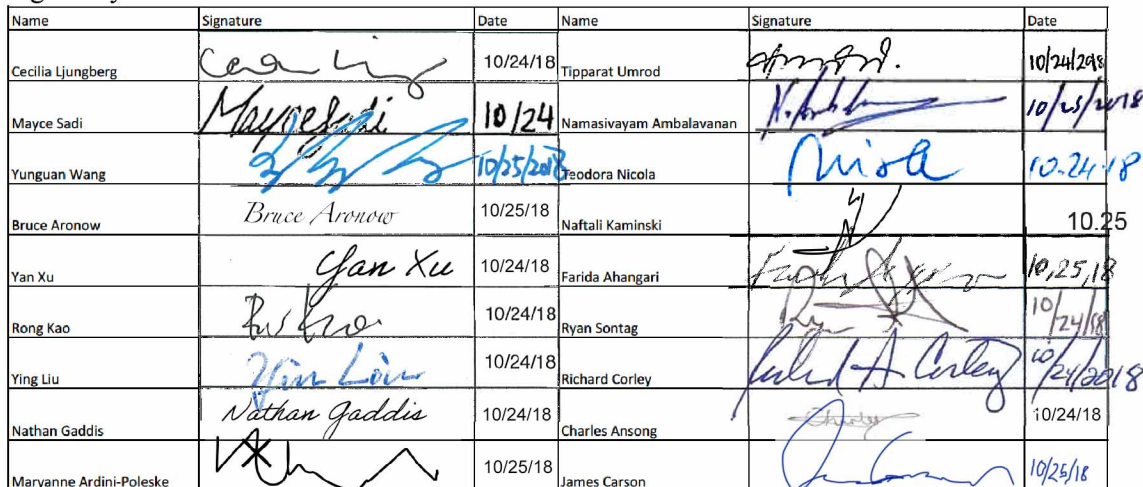 Name Signature Date Name Signature Date
Cecilia Ljungberg 10/24/18 Tipparat Umrod 10/24/2018
Mayce Sadi MayceSadi 10/24 Namasivayam Ambalavanan 10/25/2018
Yunguan Wang 10/25/2018 Teodora Nicola Nicola 10-24-18
Bruce Aronow Bruce Aronow 10/25/18 Naftali Kaminski 10.25
Yan Xu Yan Xu 10/24/18 Farida Ahangari 10,25,18
Rong Kao 10/24/18 Ryan Sontag 10/24/18
Ying Liu 10/24/18 Richard Corley Richard A Corley 10/24/2018
Nathan Gaddis Nathan Gaddis 10/24/18 Charles Ansong Charles 10/24/18
Maryanne Ardini-Poleske 10/25/18 James Carson 10/25/18